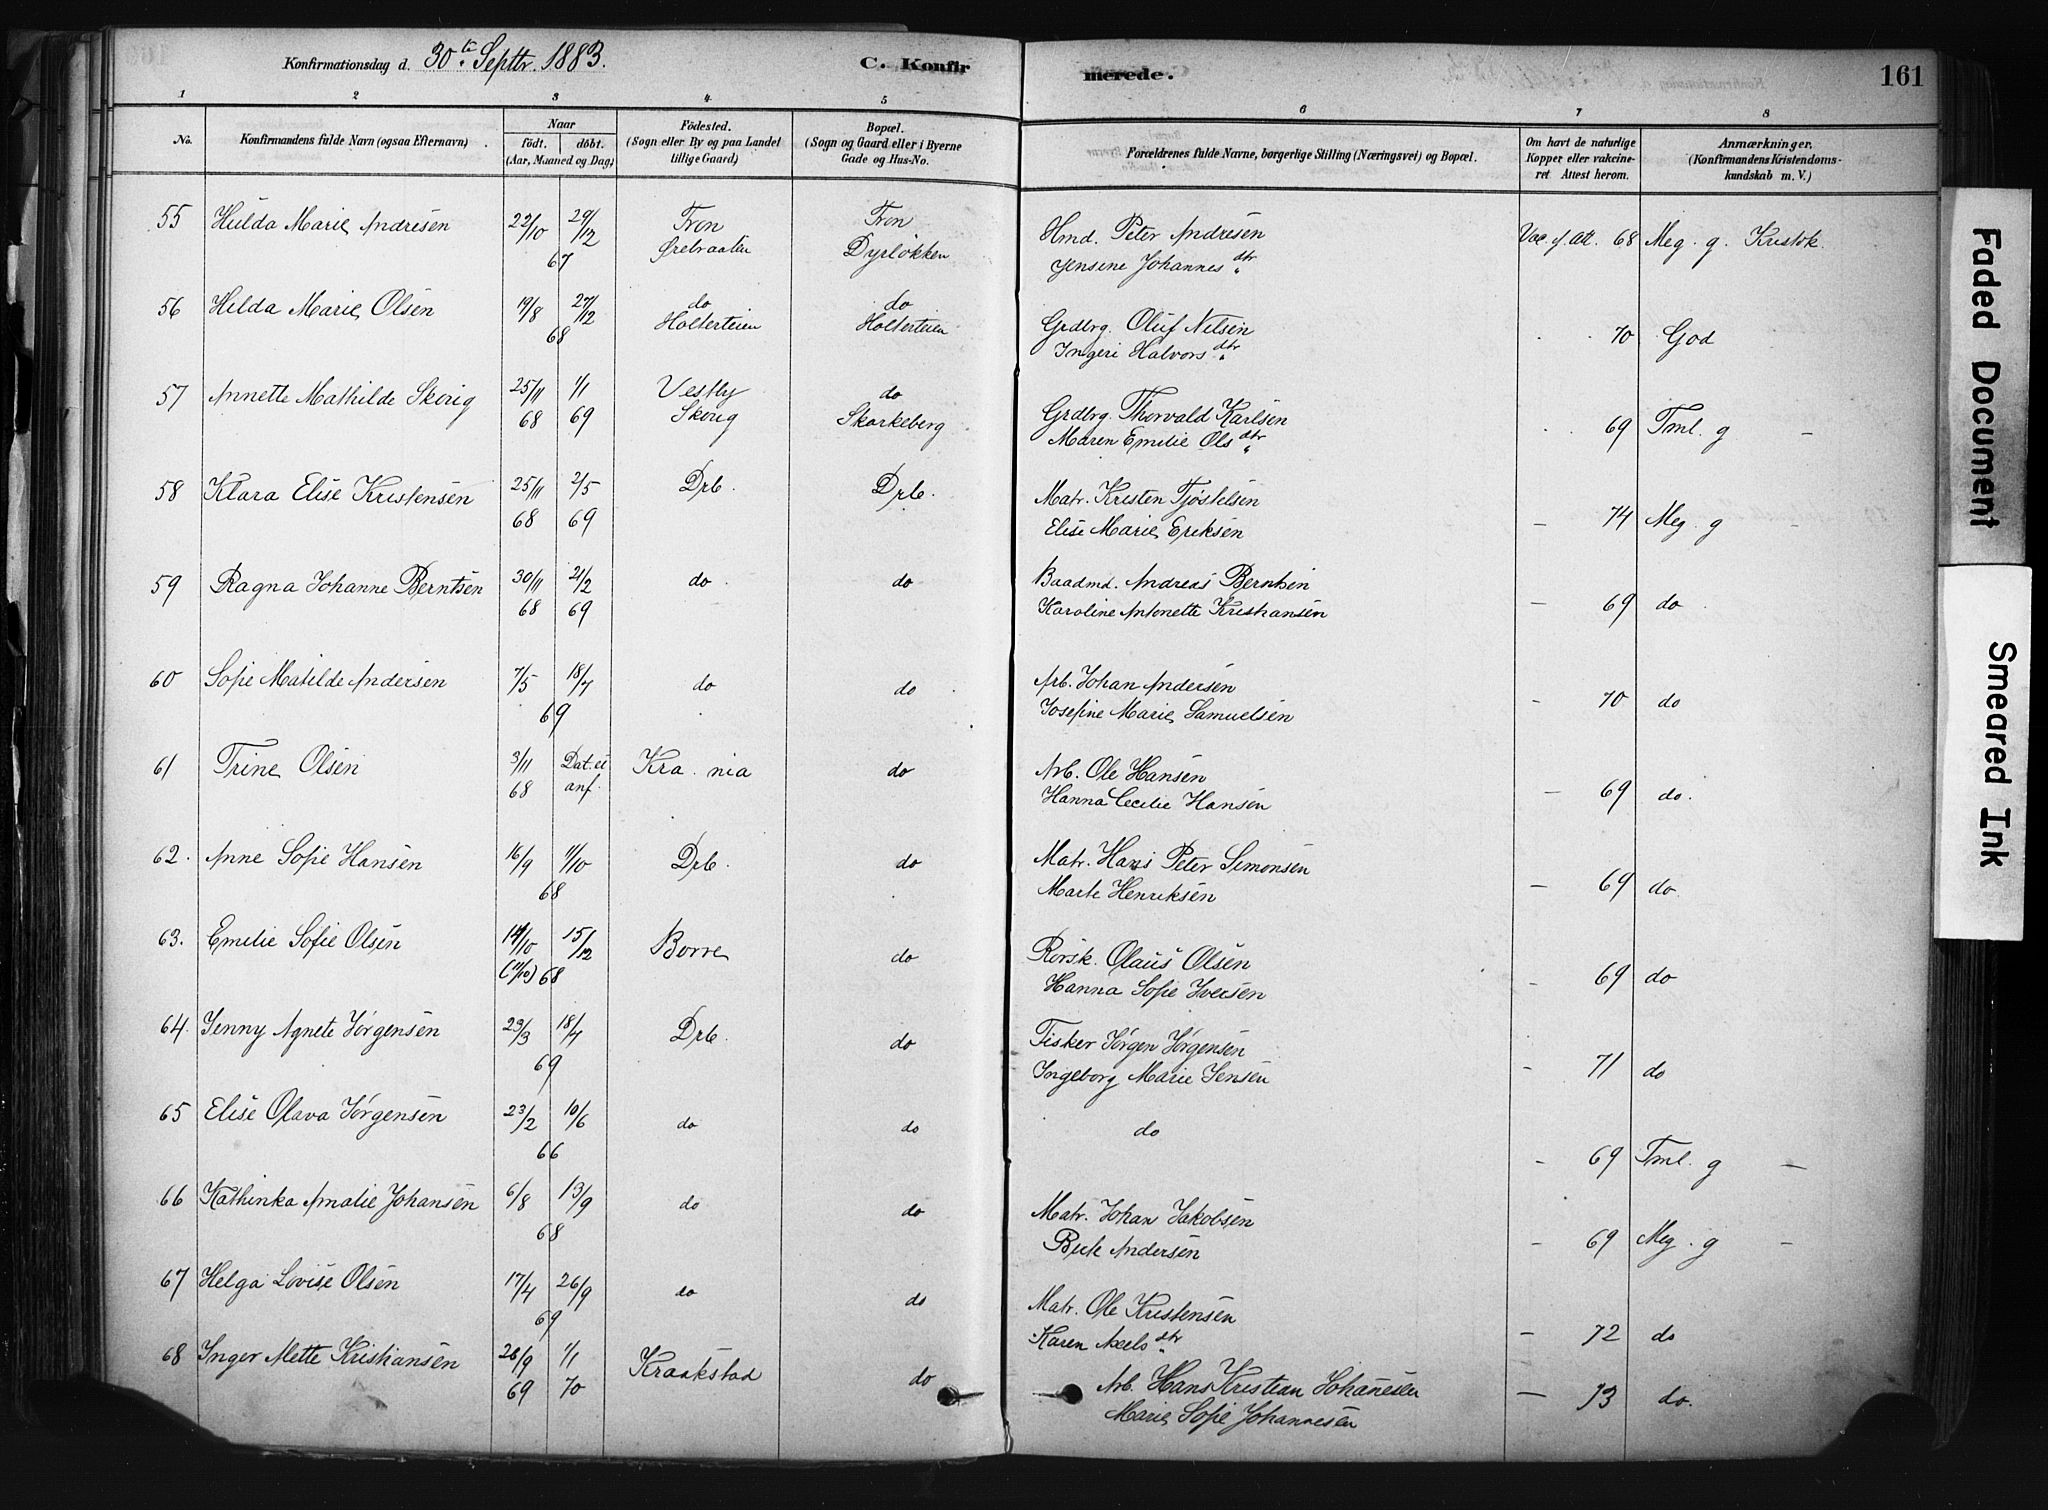 Konfirmationsdag d. 30te Septtr. 1883. C. Konfirmerede. 161
1 2 3 4 5 6 7 8
No. Konfirmandens fulde Navn (ogsaa Efternavn) Naar födt. döbt. (Aar, Maaned og Dag) Födested. (Sogn eller By og paa Landet tillige Gaard) Bopæl. (Sogn og Gaard eller i Byerne Gade og Hus-No. Forældrenes fulde Navne, borgerlige Stilling (Næringsvei) og Bopæl. Om havt de naturlige Kopper eller vakcineret Attest herom. Anmærkninger. (Konfirmandens Kristendomskundskab m. V.)
55 Hulda Marie Andresen 22/10 29/12 67 Fron Ørebraaten Fron Dyrløkken Hmd. Peter Andresen Jensine Johannesdtr Vac. f. Att. 68 Meg. g. Kristdk.
56 Hilda Marie Olsen 19/8 27/12 68 do Holterteien do Holterteien Grdbrg. Oluf Nilsen Ingeri Halvorsdtr 70 God
57 Annette Mathilde Skorig 25/11 68 1/1 69 Vestby Skorig do Skorkeberg Grdbrg. Thorvald Karlsen Maren Emilie Olsdtr 69 Tml. g —
58 Klara Elise Kristensen 25/11 68 2/5 69 Drb. Drb. Matr. Kristen Tjøstelsen Elise Marie Eriksen — 74 Meg. g —
59 Ragna Johanne Berntsen 30/11 68 21/2 69 do do Baadmd. Andreas Berntsen Karoline Antonette Kristiansen — 69 do
60 Sofie Matilde Andersen 7/5 18/7 69 do do Arb. Johan Andersen Josefine Marie Samuelsen — 70 do
61 Trine Olsen 3/11 68 Dat. ei anf. Kra.nia do Arb. Ole Hansen Hanna Cecilie Hansen — 69 do.
62. Anne Sofie Hansen 16/9 11/10 68 Drb. do Matr. Hans Peter Simonsen Marte Henriksen — 69 do.
63. Emilie Sofie Olsen 14/10 (11/10) 15/12 68 Borre do Rorsk. Olaus Olsen Hanna Sofie Iversen — 69 do
64. Jenny Agnete Jørgensen 23/3 18/7 69 Drb. do Fisker Jørgen Jørgensen Ingeborg Marie Jensen — 71 do
65 Elise Olava Jørgensen 23/2 10/6 66 do do do — 69 Tml. g —
66 Kathinka Amalie Johansen 6/8 13/9 68 do do Matr. Johan Jakobsen Berte Andersen — 69 Meg. g —
67 Helga Lovise Olsen 17/4 26/9 69 do do Matr. Ole Kristensen Karen Axelsdtr — 72 do
68 Inger Mette Kristiansen 26/9 69 1/1 70 Kraakstad do Arb. Hans Kristian Johanesen Marie Sofie Johannesen — 73 do.
Faded Document
Smeared Ink